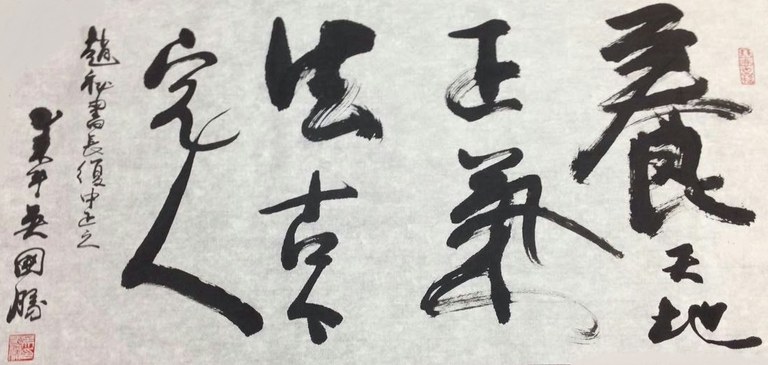 養天地
正氣
法古今
完人
趙秘書長復中正之
吳國